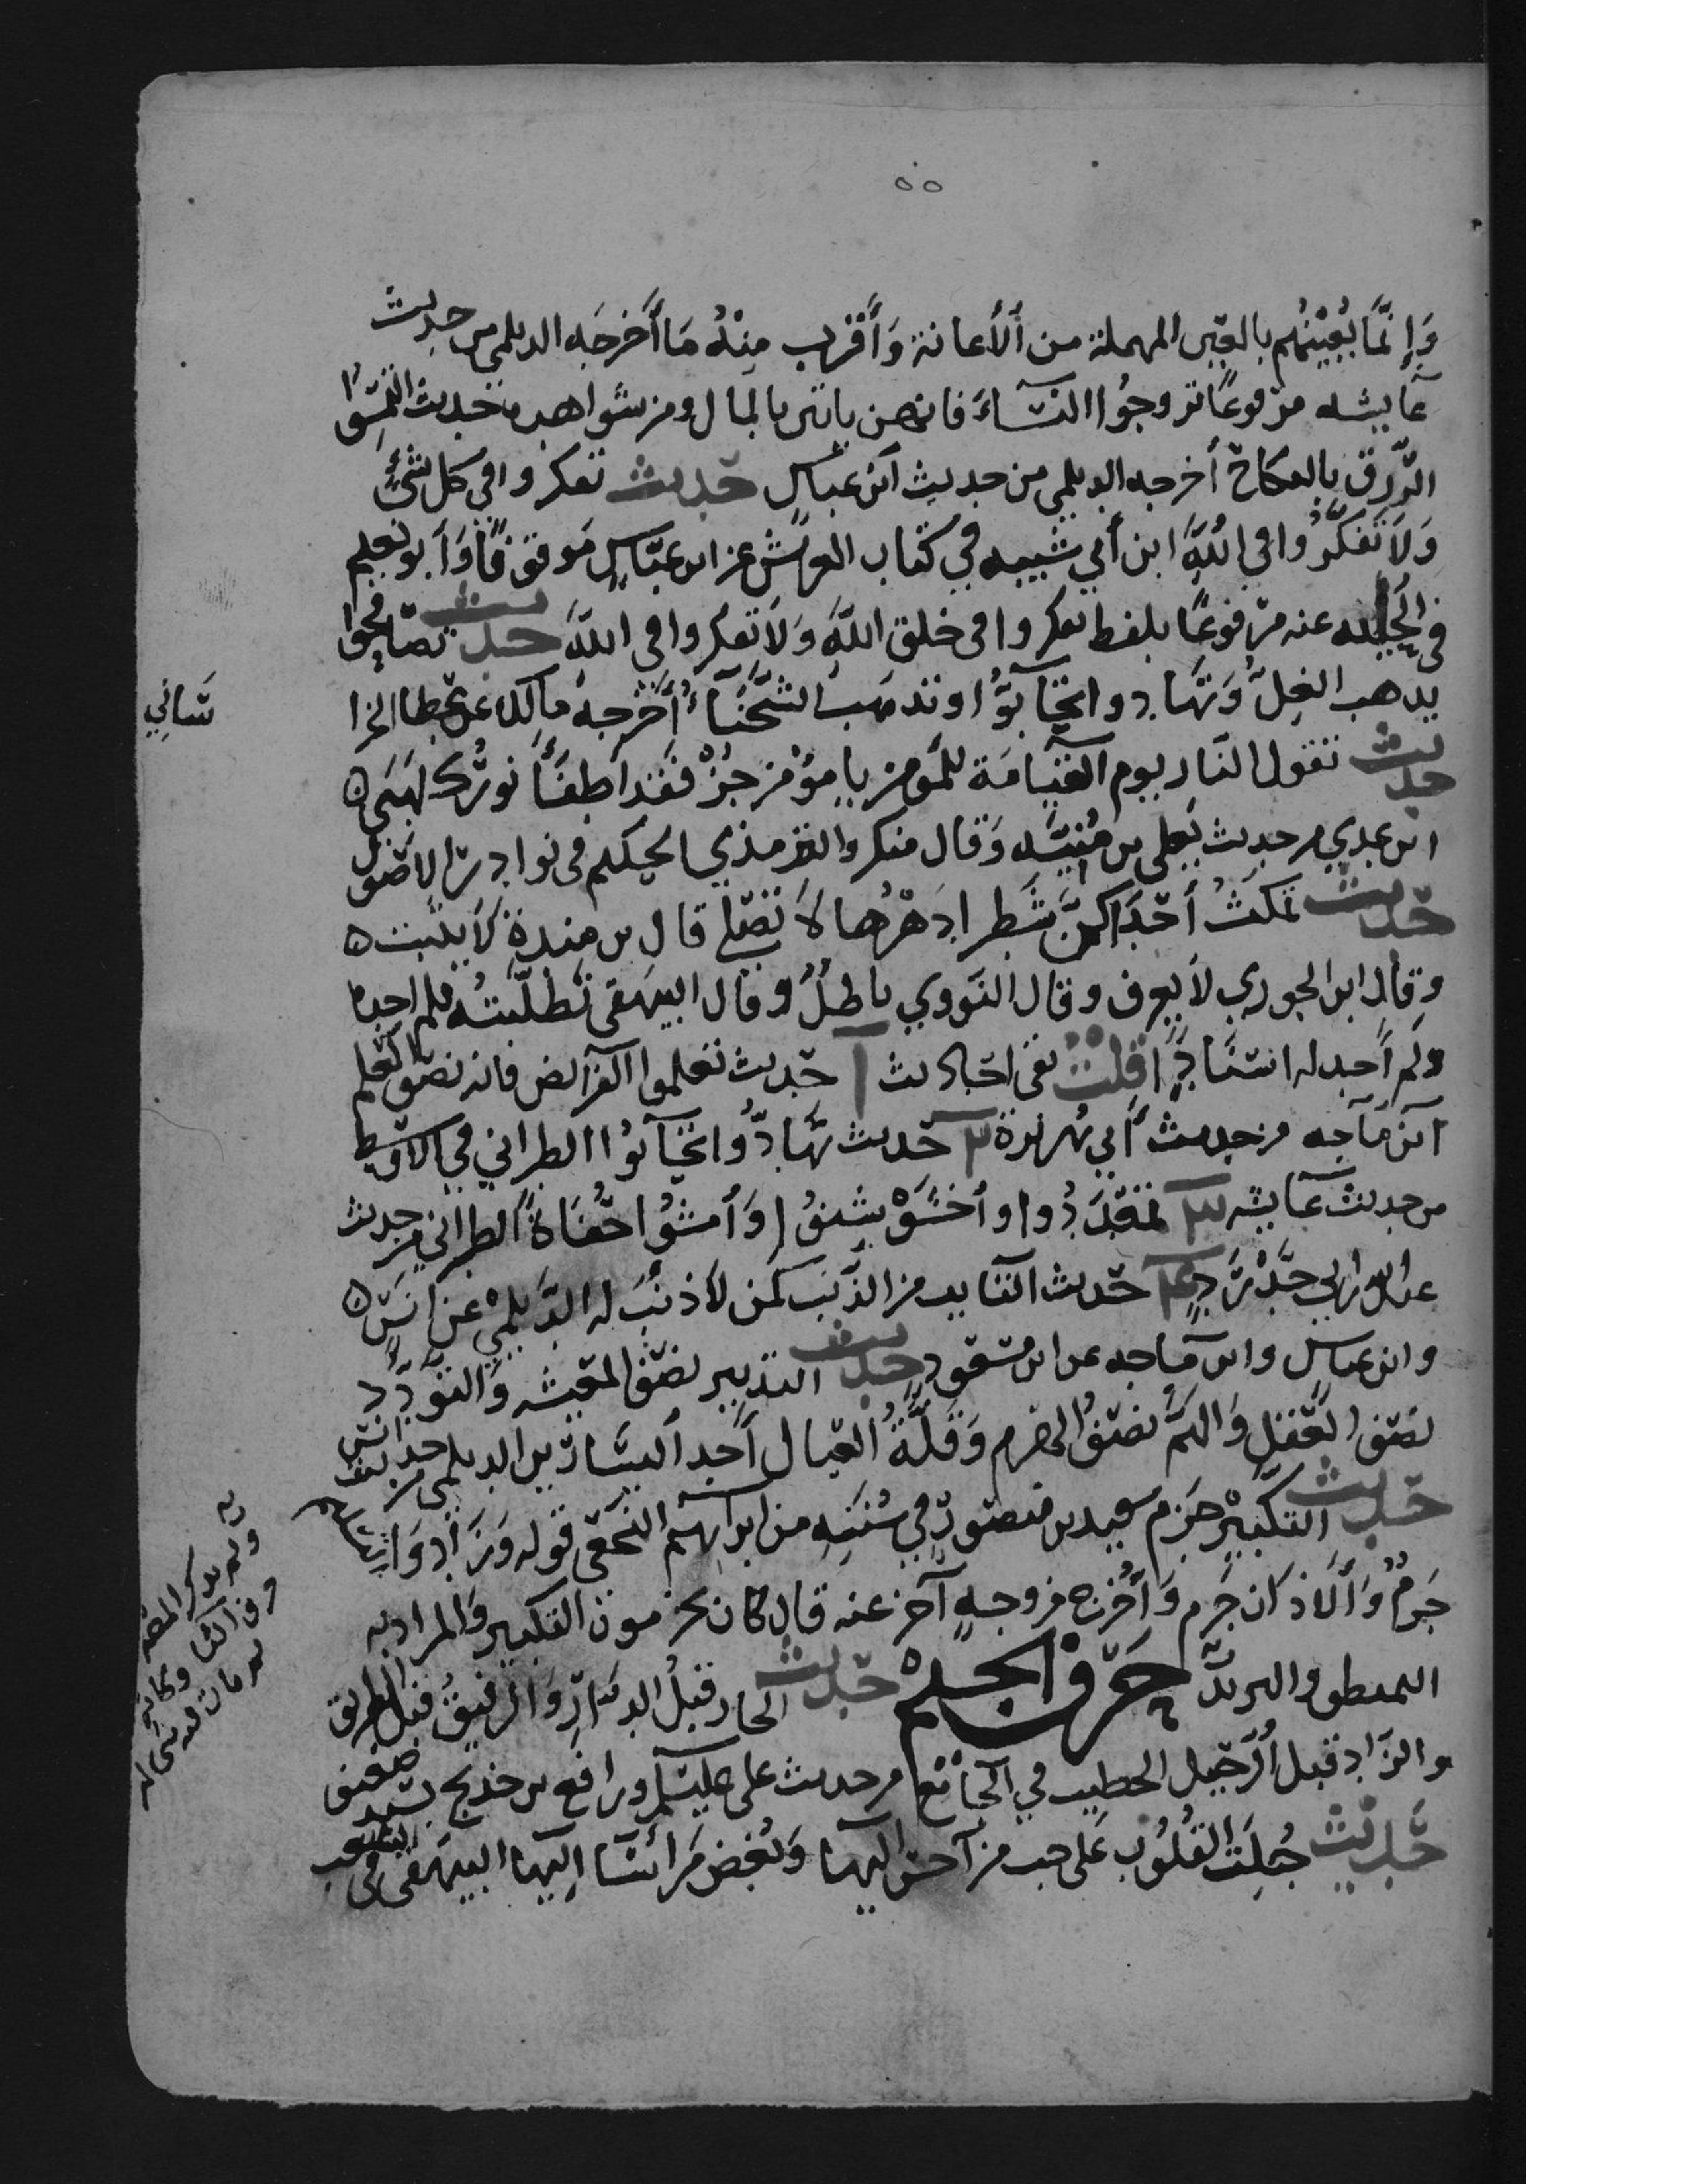 ٥٥
وَإِنَّمَا يُعِيْنُهُم بالعين المهملة من الأعانة وَأَقرب مِنْهُ مَا أَخرجَه الديلمي من حديث
عايشه مرفوعًا تزوجُوا النساءَ فانهن ياتين بالمال ومن شواهده حديث التمسُوا
الرزق بالنكاح أخرجه الديلمي من حديث ابن عباس حديث تفكروا في كل شئٍ
وَلاَ تَفَكَّرُوا في اللهِ ابن أبي شيبه في كتاب العرش عن ابن عبّاس موقوفًا وَأبو نعيم
في الحلية عنه مرفوعًا بلفظ تفكروا في خلق اللهِ وَلاَ تفكروا في اللهَ حديث تصافحوا
يذهب الغِلُّ وَتهَادوا تحَابّوُا وتذهب الشَّحْنَاءُ أَخْرجهُ مالك عن عطا الخرا
ساني
حديث تقول النار يوم القيامَة للمؤمن يا مؤمن جُزْ فَقد أطفَأَ نورُك لهَبَي ه
ابن عدي من حديث يَعلى بن مُنيَه وَقال منكر والترمذي الحكيم في نوادر الاصول
حديث تمكثُ أحَداكنَّ شَطر دَهْرُها لاَ تصَلي قال بن مندة لا يثبت ه
وقال ابن الجوزي لاَ يعرف وقال النّووي باطلٌ وقال البيهقي تطلّبتُه فلم اجده
ولم أجد له اسنادًا قلت بقى احاديث ١ حديث تعلموا الفرائض فانه نصف العلم
ابن مَاجه من حديث أبي هُريرة ٢ حديث تهَادُّوا تحَابُّوا الطبراني في الاوسط
من حديث عَايشه ٣ تمَعْدَدُوا وأخشَوْشنُوا وَأمشُوا حُفَاةً الطبراني من حديث
عبد الله بن ابي حَدْرَدٍ ٤ حديث التايب من الذّنب كمَن لاَ ذنْبَ له الدَّيلمي عن انسٍ ه
وابن عباس وابن مَاجه عن ابن مسعودٍ حديث التدبير نصف المعيشه وَالتودّد
نصف العَقل وَالهَمُّ نصفُ الهرم وَقلَّةُ العيال أَحد اليسَارَين الديلمي من حديث انس
حديث التكبيْر جزم سعيد بن منصور في سُننِه من ابراهيم النخعي قوله وَزَاد وَالسلام
جَزمٌ وَالاَذان جَزم وَأُخرج من وجهٍ آخر عنه قال كان يجزمون التكبير وَالمراد به
التمطيط والمرَيد حَرف الجيم حديث الجار قبلُ الدارِ وَالرفيقُ قبل الطريق
والزاد قبل الرحيل الخطيب في الجَامع من حديث علي عليه السلم ورافع بن خديج بسند ضعيف
حديث جُبلَت القلُوْب عَلى حب من أحسَن اليها وَبُغض مَن أسَا إليها البيهقي في الشعب